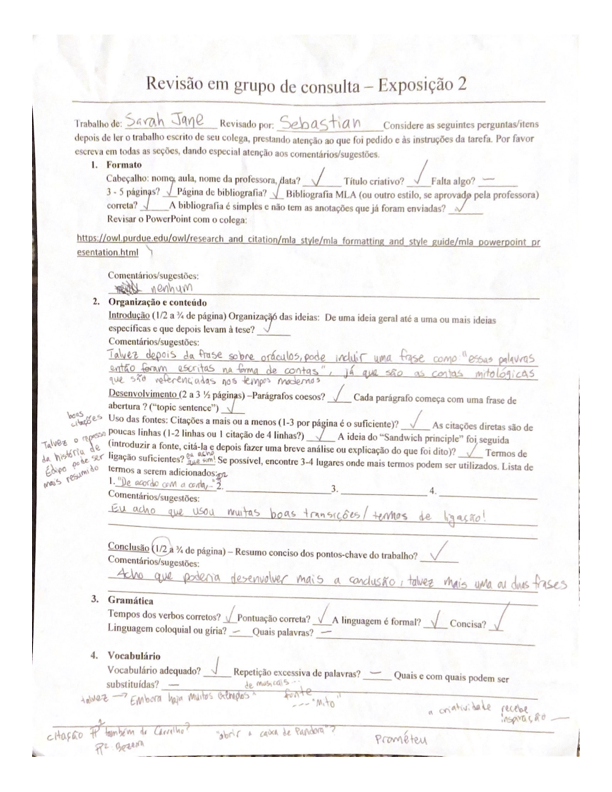 Revisão em grupo de consulta – Exposição 2
Trabalho de: Sarah Jane Revisado por: Sebastian Considere as seguintes perguntas/itens
depois de ler o trabalho escrito de seu colega, prestando atenção ao que foi pedido e às instruções da tarefa. Por favor
escreva em todas as seções, dando especial atenção aos comentários/sugestões.
1. Formato
Cabeçalho: nome, aula, nome da professora, data? ✓ Título criativo? ✓ Falta algo? —
3 - 5 páginas? ✓ Página de bibliografia? ✓ Bibliografia MLA (ou outro estilo, se aprovado pela professora)
correta? ✓ A bibliografia é simples e não tem as anotações que já foram enviadas? ✓
Revisar o PowerPoint com o colega:
https://owl.purdue.edu/owl/research_and_citation/mla_style/mla_formatting_and_style_guide/mla_powerpoint_pr
esentation.html
Comentários/sugestões:
nenhum
2. Organização e conteúdo
Introdução (1/2 a ¾ de página) Organização das ideias: De uma ideia geral até a uma ou mais ideias
específicas e que depois levam à tese? ✓
Comentários/sugestões:
Talvez depois da frase sobre oráculos, pode incluir uma frase como "essas palavras
então foram escritas na forma de contas", já que são as contas mitológicas
que são referenciadas nos tempos modernos
Desenvolvimento (2 a 3 ½ páginas) –Parágrafos coesos? ✓ Cada parágrafo começa com uma frase de
abertura ? ("topic sentence") ✓
boas citações
Uso das fontes: Citações a mais ou a menos (1-3 por página é o suficiente)? ✓ As citações diretas são de
poucas linhas (1-2 linhas ou 1 citação de 4 linhas?) ✓ A ideia do "Sandwich principle" foi seguida
(introduzir a fonte, citá-la e depois fazer uma breve análise ou explicação do que foi dito)? ✓ Termos de
Talvez o
da história de
Édipo pode ser
mais resumido
ligação suficientes? eu acho que sim! Se possível, encontre 3-4 lugares onde mais termos podem ser utilizados. Lista de
termos a serem adicionados:
1. "De acordo com a 2. 3. 4.
Comentários/sugestões:
Eu acho que usou muitas boas transições/ termos de ligação!
Conclusão (1/2 a ¾ de página) – Resumo conciso dos pontos-chave do trabalho? ✓
Comentários/sugestões:
Acho que poderia desenvolver mais a conclusão, talvez mais uma ou duas frases
3. Gramática
Tempos dos verbos corretos? ✓ Pontuação correta? ✓ A linguagem é formal? ✓ Concisa? ✓
Linguagem coloquial ou gíria? — Quais palavras? —
4. Vocabulário
Vocabulário adequado? ✓ Repetição excessiva de palavras? — Quais e com quais podem ser
substituídas? — de musicais...
talvez → Embora haja muitos fonte
"mito"
a criatividade recebe
inspiração —
citação também de Carvalho? "abrir a caixa de Pandora"? Prometeu
Bezerra